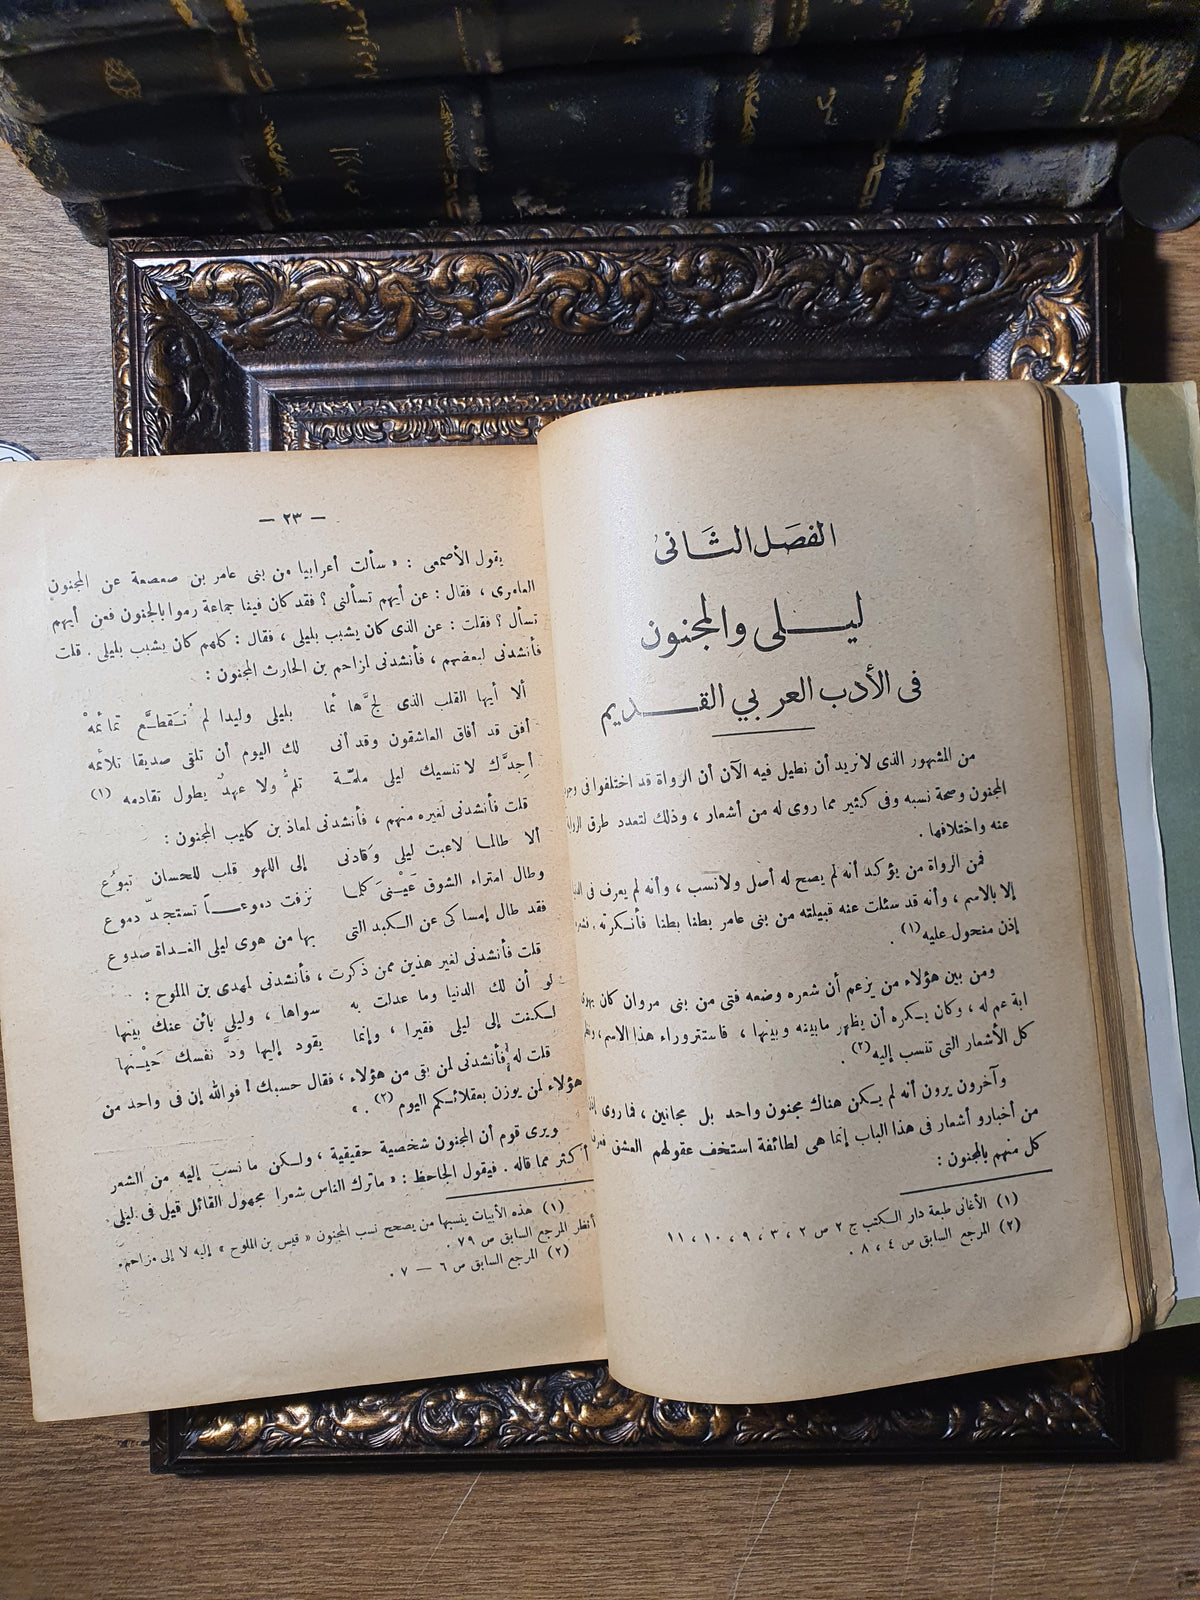 الفصل الثانى
ليلى والمجنون
فى الأدب العربي القديم
من المشهور الذى لانريد أن نطيل فيه الآن أن الرواة قد اختلفوا فى
المجنون وصحة نسبه وفى كثير مما روى له من أشعار ، وذلك لتعدد طرق
عنه واختلافها .
فمن الرواة من يؤكد أنه لم يصح له أصل ولانسب ، وأنه لم يعرف فى
إلا بالاسم ، وأنه قد سئلت عنه قبيلته من بنى عامر بطنا بطنا فأنكرته .
إذن منحول عليه (١) .
ومن بين هؤلاء من يزعم أن شعره وضعه فتى من بنى مروان كان
ابة عم له ، وكان يكره أن يظهر مابينه وبينها ، فاستتروراء هذا الاسم ،
كل الأشعار التى تنسب إليه (٢) .
وآخرون يرون أنه لم يكن هناك مجنون واحد بل مجانين ، فماروى
من أخبارو أشعار فى هذا الباب إنما هى لطائفة استخف عقولهم العشق
كل منهم بالمجنون :
(١) الأغانى طبعة دار الكتب ج ٢ ص ٢ ، ٣ ، ٩ ، ١٠ ، ١١
(٢) المرجع السابق ص ٤ ، ٨ .
— ٢٣ —
يقول الأصمعى : « سألت أعرابيا من بنى عامر بن صعصعة عن المجنون
العامرى ، فقال : عن أيهم تسألنى ؟ فقد كان فينا جماعة رموا بالجنون فعن أيهم
تسأل ؟ فقلت : عن الذى كان يشبب بليلى ، فقال : كلهم كان يشبب بليلى . قلت
فأنشدنى لبعضهم ، فأنشدنى لمزاحم بن الحارث المجنون :
ألا أيها القلب الذى لجَّ هائما بليلى وليدا لم تَقطَّع تمائمهْ
أفق قد أفاق العاشقون وقد أنى لك اليوم أن تلقى صديقا تلائمه
أجِدَّك لا تنسيك ليلى ملمّة تلمُّ ولا عهدٌ يطول تقادمه (١)
قلت فأنشدنى لغيره منهم ، فأنشدنى لمعاذ بن كليب المجنون :
ألا طالما لاعبت ليلى وقادنى إلى اللهو قلب للحسان تبوُع
وطال امتراء الشوق عَيْنىَ كلما نزفت دموعاً تستجدّ دموع
فقد طال إمساكى عن الكبد التى بها من هوى ليلى الغداة صدوع
قلت فأنشدنى لغير هذين ممن ذكرت ، فأنشدنى لمهدى بن الملوح :
لو أن لك الدنيا وما عدلت به سواها ، وليلى بائن عنك بينها
لكنت إلى ليلى فقيرا ، وإنما يقود إليها ودَّ نفسك حَيْنها
قلت له فأنشدنى لمن بقى من هؤلاء ، فقال حسبك ! فوالله إن فى واحد من
هؤلاء لمن يوزن بعقلائكم اليوم (٢) . »
ويرى قوم أن المجنون شخصية حقيقية ، ولكن ما نسب إليه من الشعر
أكثر مما قاله . فيقول الجاحظ : « ماترك الناس شعرا مجهول القائل قيل فى ليلى
(١) هذه الأبيات ينسبها من يصحح نسب المجنون « قيس بن الملوح » إليه لا إلى مزاحم.
أنظر المرجع السابق ص ٧٩ .
(٢) المرجع السابق ص ٦ — ٧ .